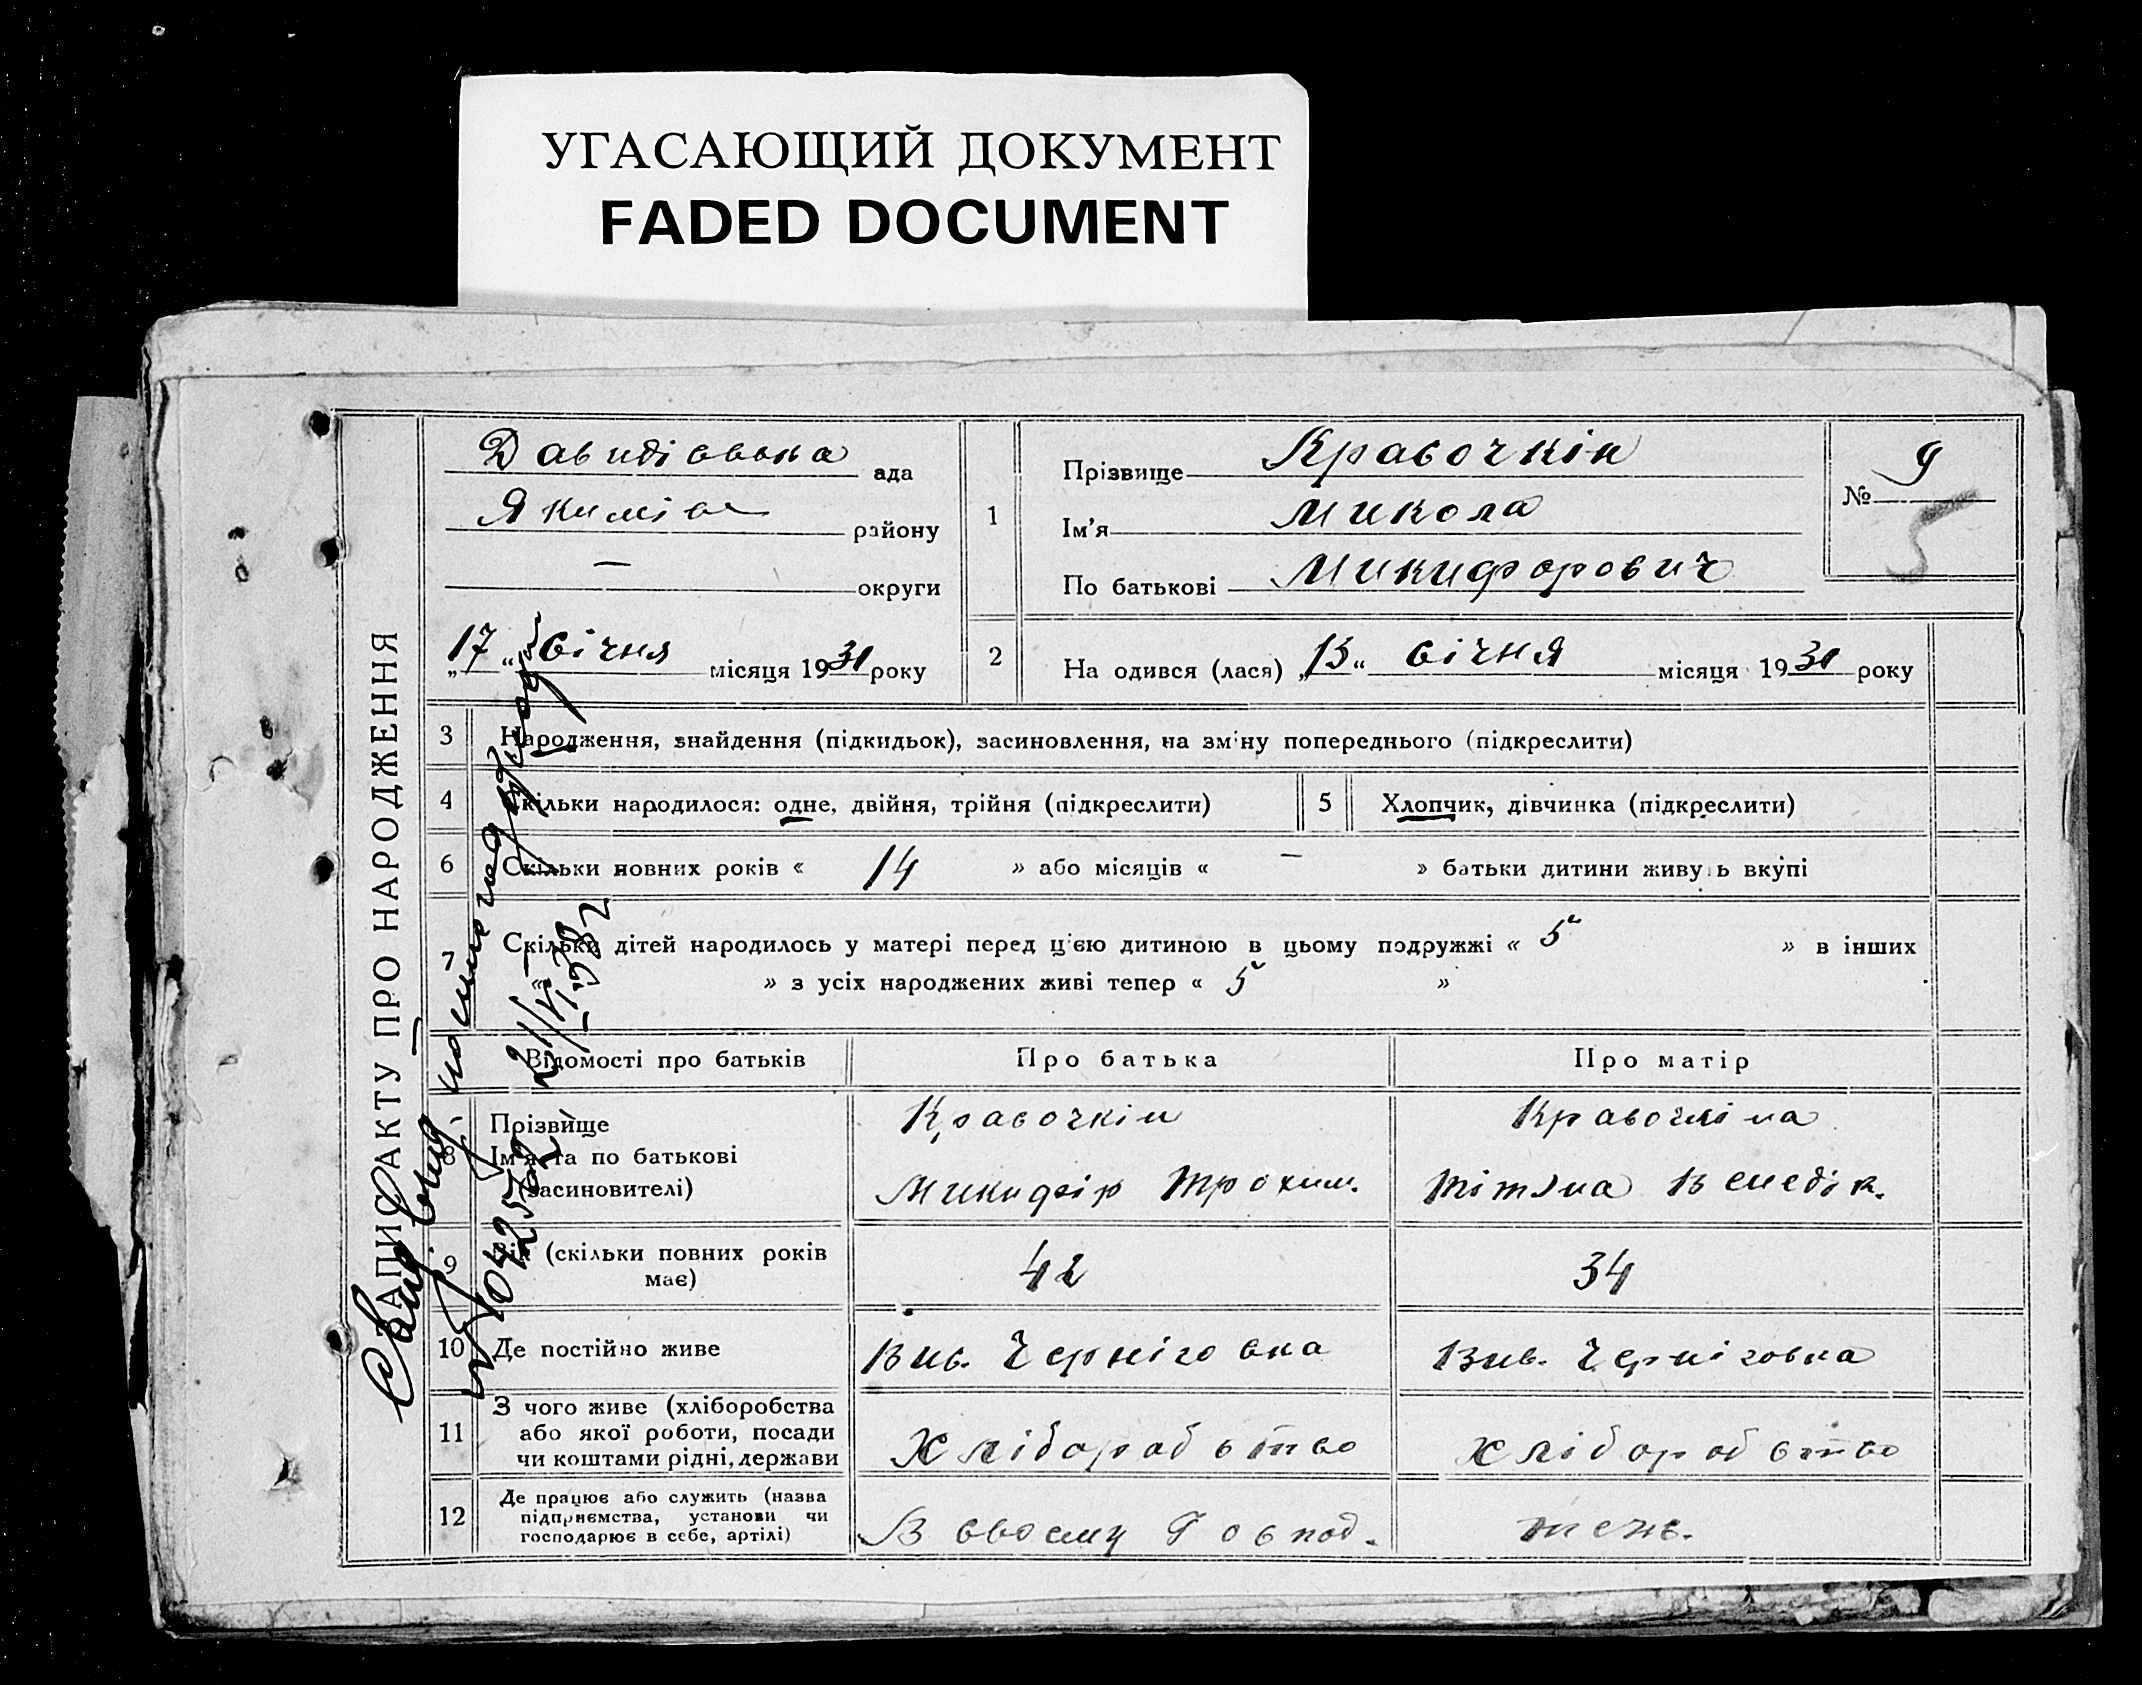 УГАСАЮЩИЙ ДОКУМЕНТ
FADED DOCUMENT
ЗАПИС АКТУ ПРО НАРОДЖЕННЯ
Давидівська ада
Якимів району
— округи
„17“ січня місяця 1931 року
1
Прізвище Кравочкін
Ім'я Микола
По батькові Микифорович
№ 9
5
2 На одився (лася) „13“ січня місяця 1931 року
3 Народження, знайдення (підкидьок), засиновлення, на зміну попереднього (підкреслити)
4 Скільки народилося: одне, двійня, трійня (підкреслити)
5 Хлопчик, дівчинка (підкреслити)
6 Скільки повних років « 14 » або місяців « — » батьки дитини живуть вкупі
7 Скільки дітей народилось у матері перед цією дитиною в цьому подружжі « 5 » в інших
« — » з усіх народжених живі тепер « 5 »
Відомості про батьків Про батька Про матір
8 Прізвище
Ім'я та по батькові
(засиновителі)
Кравочкін
Микифір Трохим.
Кравочкіна
Тітяна Венедік.
9 Вік (скільки повних років
має)
42
34
10 Де постійно живе
Вив. Черніговка
Вив. Черніговка
11 З чого живе (хліборобства
або якої роботи, посади
чи коштами рідні, держави
Хліборобство
хліборобство
12 Де працює або служить (назва
підприємства, установи чи
господарює в себе, артілі)
В своєму Господ.
теж.